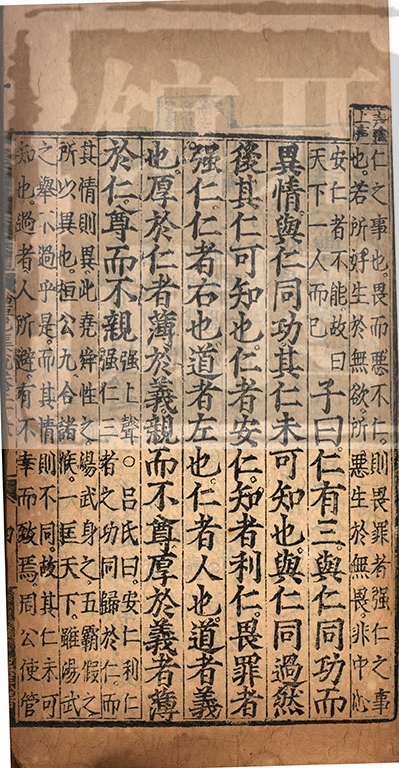 仁之事也。畏而惡不仁。則畏罪者强仁之事
也。若所好生於無欲。所惡生於無畏。非中心
安仁者不能。故曰
天下一人而已
子曰。仁有三。與仁同功而
異情。與仁同功。其仁未可知也。與仁同過。然
後其仁可知也。仁者安仁。知者利仁。畏罪者
强仁。仁者右也。道者左也。仁者人也。道者義
也。厚於仁者薄於義。親而不尊。厚於義者薄
於仁。尊而不親
强上聲。○呂氏曰。安仁利仁
强仁三者之功。同歸於仁。而
其情則異。此堯舜性之。湯武身之。五霸假之
所以異也。桓公九合諸侯。一匡天下。雖湯武
之舉。不過乎是。而其情則不同。故其仁未可
知也。過者人所避。有不幸而致焉。周公使管